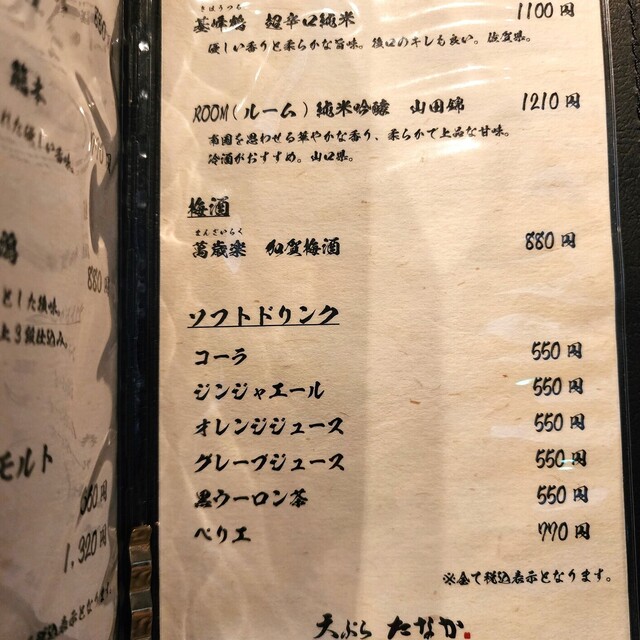 熊本
れた優しい香味。
880円
とした後味。
モルト
1,320円
きほうつる
基峰鶴 超辛口純米 1100円
優しい香りと柔らかな旨味。後口のキレも良い。佐賀県。
ROOM(ルーム)純米吟醸 山田錦 1210円
南国を思わせる華やかな香り、柔らかで上品な甘味。
冷酒がおすすめ。山口県。
梅酒
まんざいらく
萬歳楽 加賀梅酒 880円
ソフトドリンク
コーラ 550円
ジンジャエール 550円
オレンジジュース 550円
グレープジュース 550円
黒ウーロン茶 550円
ペリエ 770円
※全て税込表示となります。
天ぷら たなか